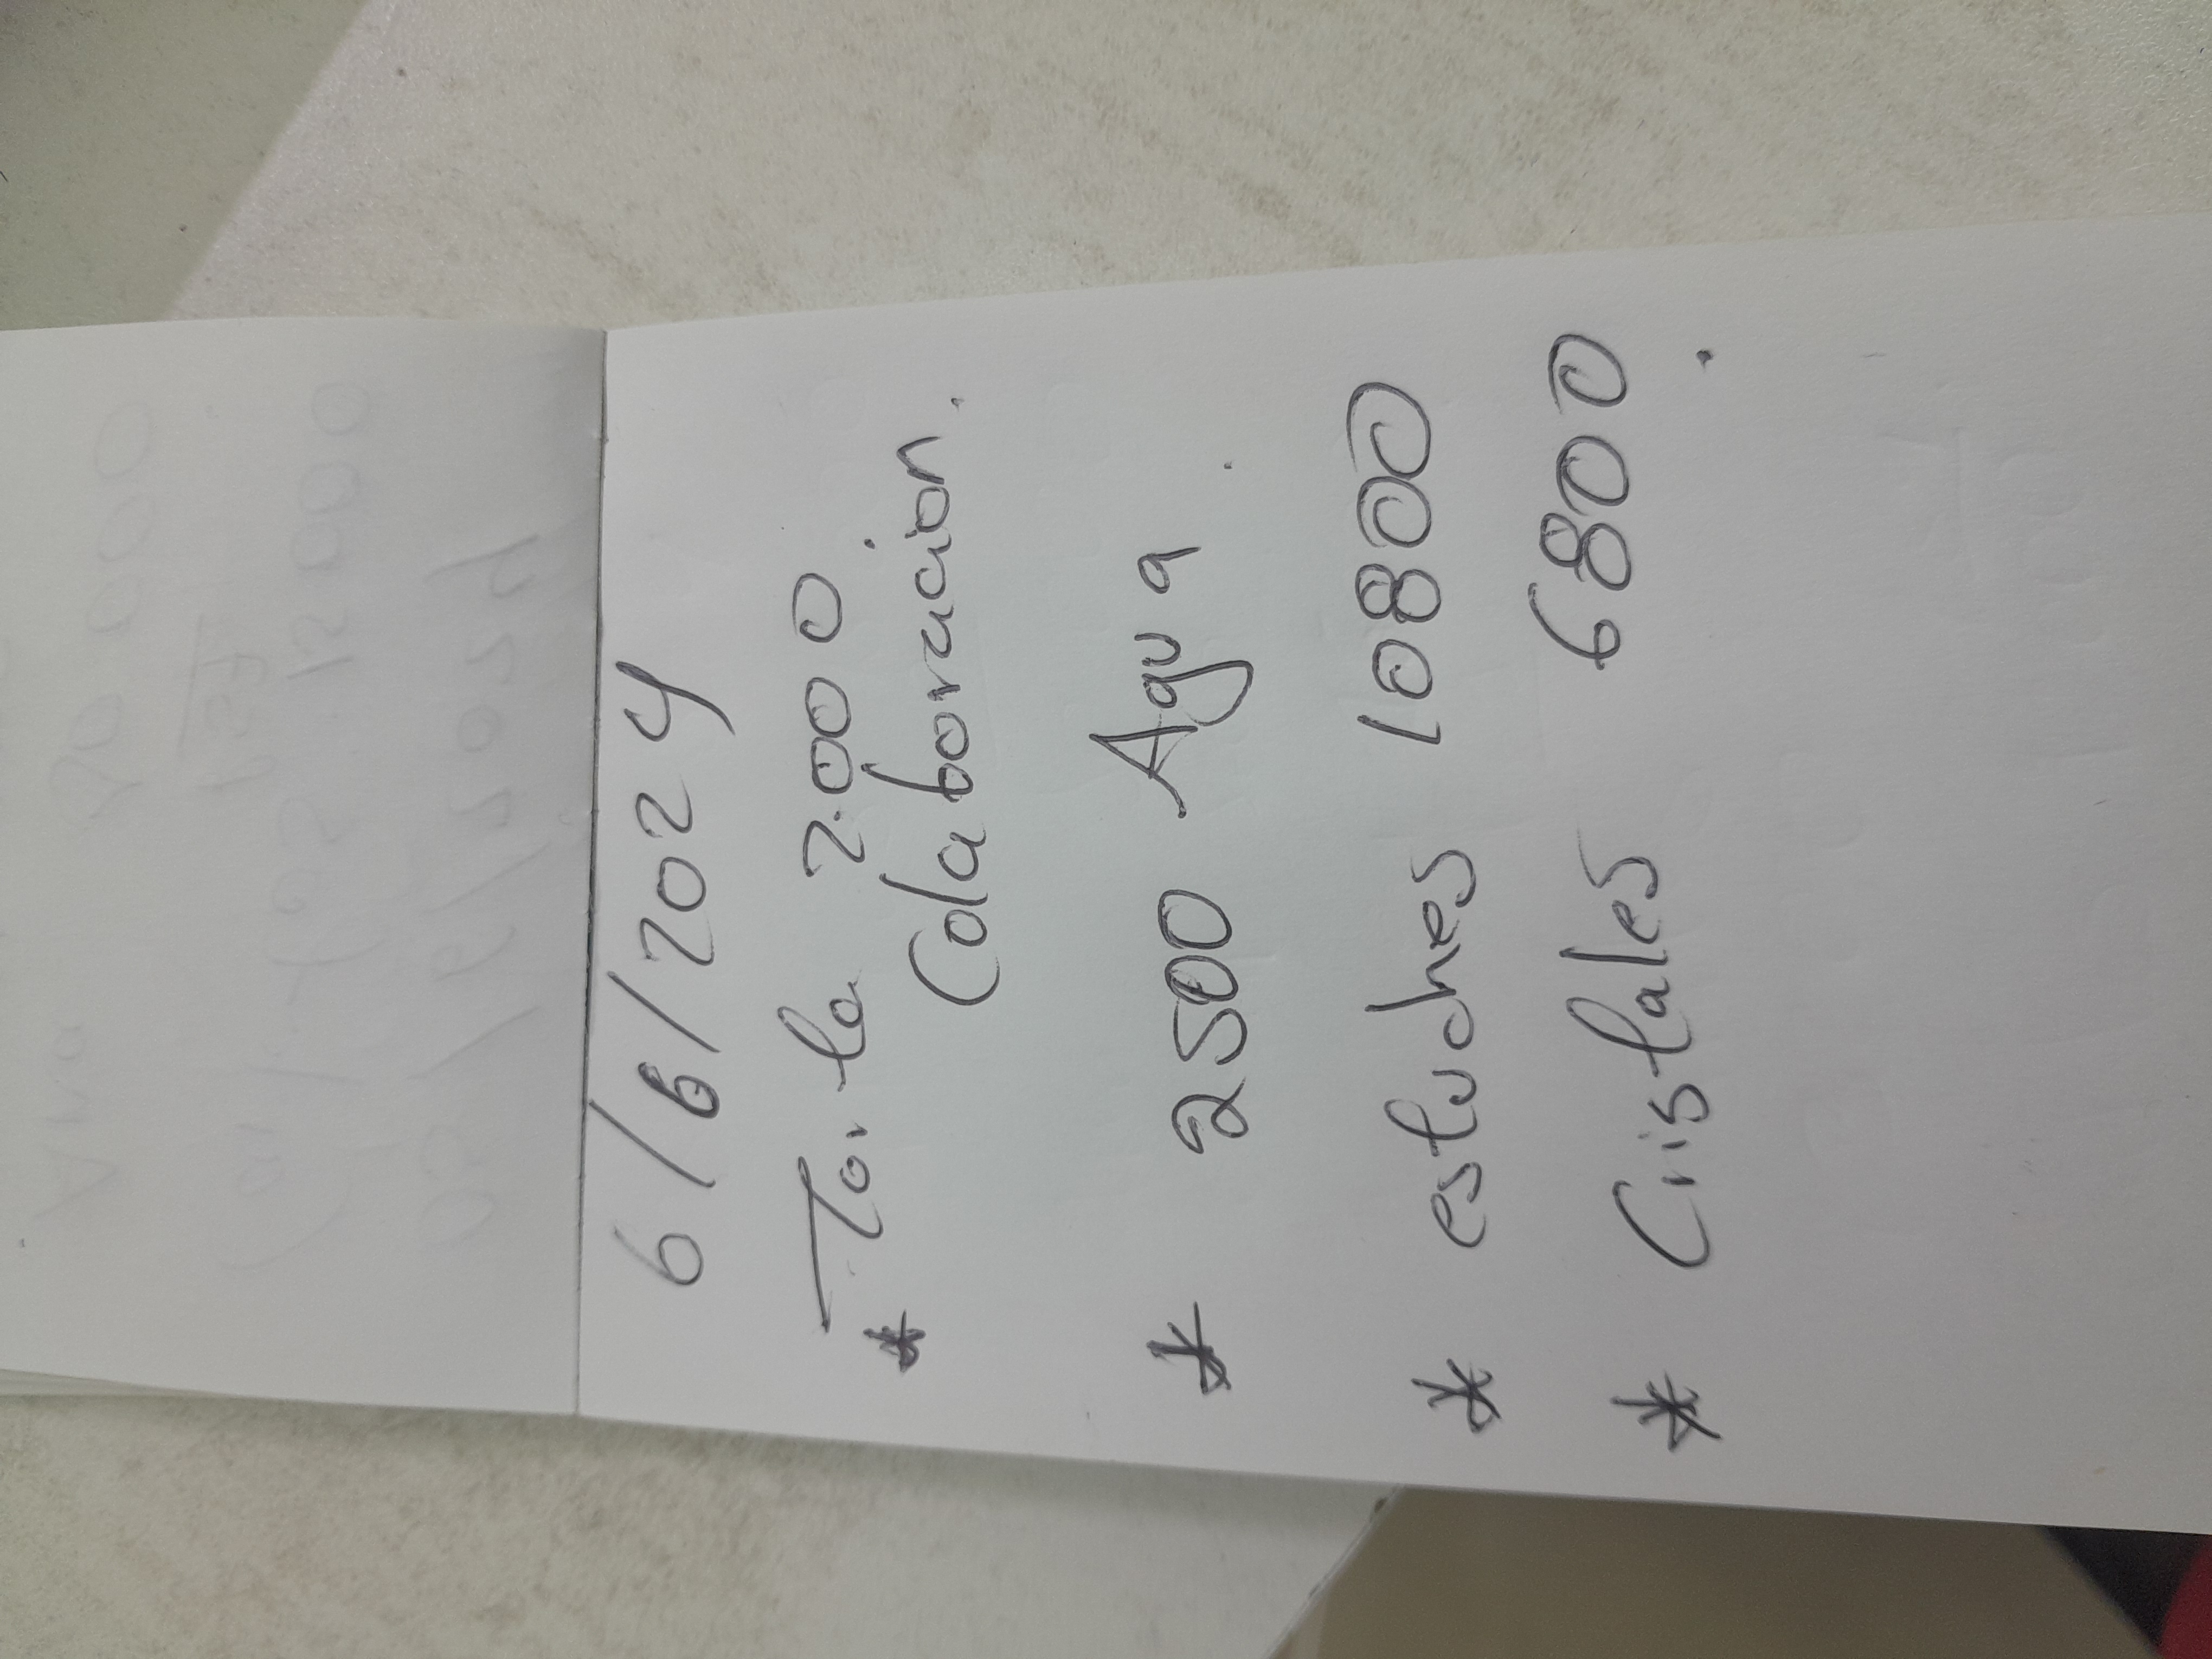 6/6/2024
* Torta 2.000.
Colaboracion.
* 2500 Agua.
* estuches 10800
* Cristales 6800.